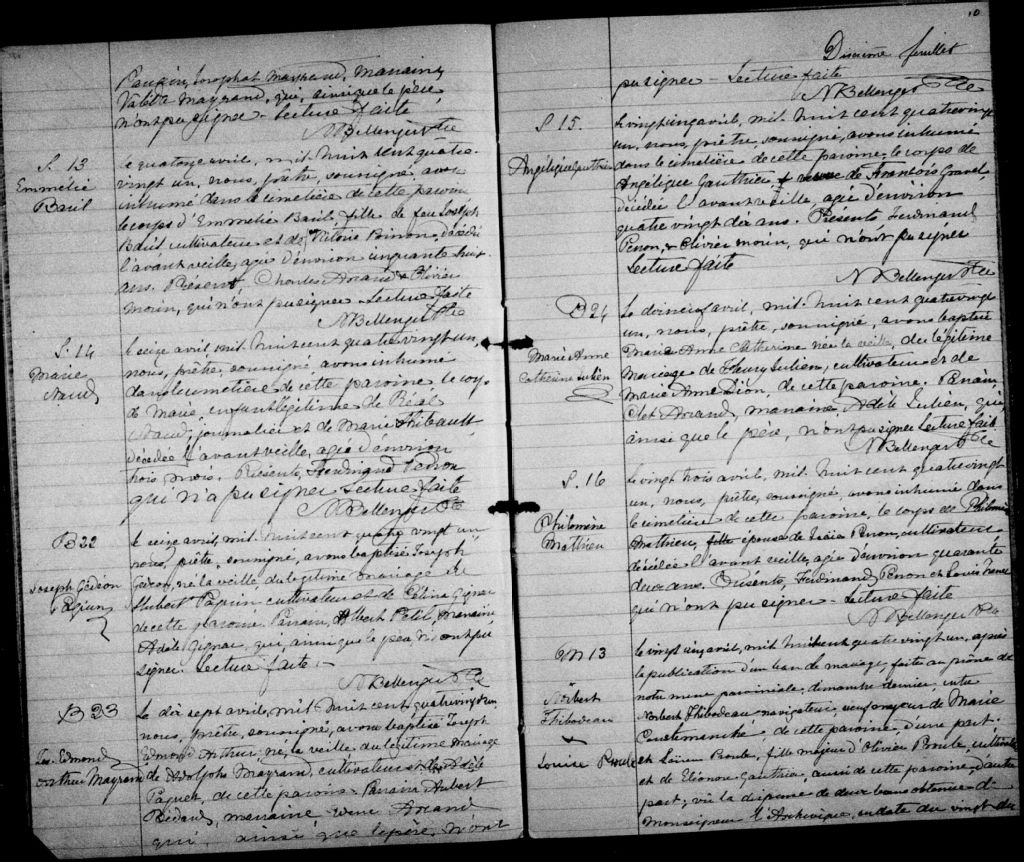 Parrain, Josephat Mayrand, Marraine
Valéda Mayrand, qui, ainsi que le père
n'ont pu signer. Lecture faite
N Bellenger Ptre
S. 13
Emmelie
Baril
le quatorze avril, mil huit cent quatre-
vingt un, nous, prêtre, soussigné, avons
inhumé dans le cimetière de cette paroisse
le corps d'Emmelie Baril, fille de feu Joseph
Baril cultivateur et de décédée
l'avant veille, agée d'environ cinquante huit
ans. Présents Charles Arcand & Olivier
moin, qui n'ont pu signer. Lecture faite
N Bellenger Ptre
S. 14
Marie
Naud
le seize avril, mil huit cent quatre vingt un,
nous, prêtre, soussigné, avons inhumé
dans le cimetière de cette paroisse le corps
de Marie, enfant légitime de Réal
Naud, journalier et de Marie Thibeault,
décédée l'avant veille, agée d'environ
trois mois. Présents, Ferdinand Perron
qui n'a pu signer Lecture faite
N Bellenger Ptre
B 22
Joseph Gédéon
Paquin
le seize avril, mil huit cent quatre vingt un
nous, prêtre, soussigné, avons baptisé Joseph
Gédéon, né la veille, du légitime mariage de
Hubert Paquin cultivateur et de Gignac
de cette paroisse. Parrain, Albert Petit, Marraine
Adele Gignac, qui, ainsi que le père, n'ont pu
signer Lecture faite.
N Bellenger Ptre
B 23
Jos. Edmond
Arthur Mayrand
Le dix sept avril, mil huit cent quatre vingt un
nous, prêtre, soussigné, avons baptisé Joseph
Edmond Arthur, né, la veille du légitime mariage
de Adolphe Mayrand, cultivateur et de Adèle
Paquet, de cette paroisse Parrain Hubert
Bedard, marraine, Arcand
qui, ainsi que le père, n'ont
10
Dixième feuillet
pu signer - Lecture faite
N Bellenger Ptre
S 15.
Angélique Gauthier
Le vingt cinq avril, mil huit cent quatre vingt
un, nous, prêtre, soussigné, avons inhumé
dans le cimetière de cette paroisse, le corps de
Angélique Gauthier veuve de François Gravel,
décédée l'avant veille, agée d'environ
quatre vingt dix ans. Présents Ferdinand
Perron, & Olivier moin, qui n'ont pu signer
Lecture faite
N Bellenger Ptre
B 24
Marie Anne
Catherine Julien
Le dixneuf avril, mil huit cent quatre vingt
un, nous, prêtre, soussigné, avons baptisé
Marie Anne Catherine née la veille, du légitime
Mariage de Fleury Julien, cultivateur et de
Marie Anne Dion, de cette paroisse. Parrain,
Clet Arcand, marraine, Adèle Julien, qui,
ainsi que le père, n'ont pu signer Lecture faite
N Bellenger Ptre
S. 16
Philomène
Mathieu
Le vingt trois avril, mil huit cent quatre vingt
un, nous, prêtre, soussigné, avons inhumé dans
le cimetière de cette paroisse, le corps de Philomène
Mathieu, fille épouse de Isaïe Perron, cultivateur
décédée l'avant veille, agée d'environ quarante
deux ans. Présents, Ferdinand Perron et Louis
qui n'ont pu signer - Lecture faite
N Bellenger Ptre
M 13
Norbert
Thibodeau
&
Louise Proulx
Le vingt six avril, mil huit cent quatre vingt un, après
la publication d'un ban de mariage, faite au prône de
notre messe paroissiale, dimanche dernier, entre
Norbert Thibodeau navigateur, veuf majeur de Marie
de cette paroisse, d'une part.
et Louise Proulx, fille majeure d'Olivier Proulx, cultivateur
et de Eléonore Gauthier, aussi de cette paroisse, d'autre
part; vu la dispense de deux bans obtenue de
Monseigneur l'Archevêque, en date du vingt du